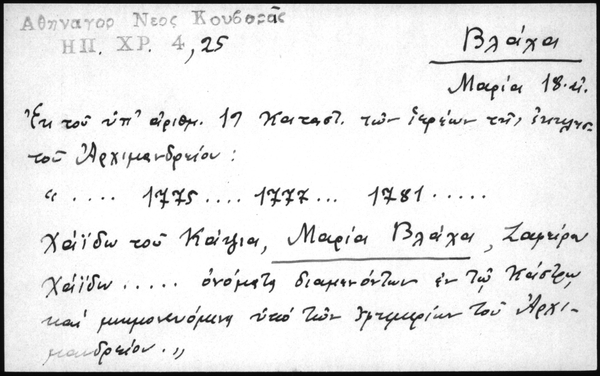 Αθηναγορ Νεος Κουβαρᾶς
ΗΠ. ΧΡ. 4, 25
Βλάχα
Μαρία 18.αἰ.
Ἐκ τοῦ ὑπ' ἀριθμ. 17 Καταστ. τῶν ἱερέων τῆς ἐκκλησ.
τοῦ Ἀρχιμανδρείου:
“ .... 1775 .... 1777 ... 1781 .....
Χάϊδω τοῦ Κάτζια, Μαρία Βλάχα,
Χάϊδω ..... ὀνόματα διαμενόντων ἐν τῷ Κάστρῳ
καί μνημονευόμενα ὑπό τῶν ἐφημερίων τοῦ Ἀρχι-
μανδρείου.„